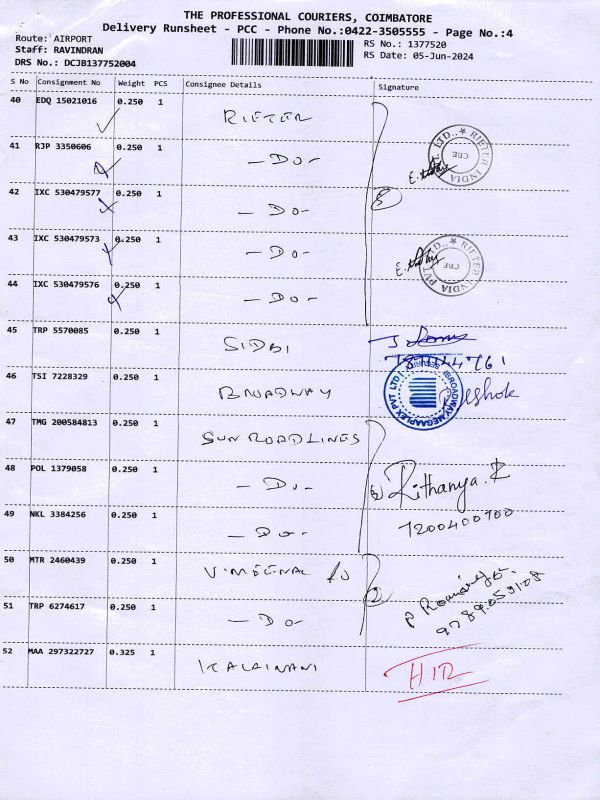 THE PROFESSIONAL COURIERS, COIMBATORE
Delivery Runsheet - PCC - Phone No.:0422-3505555 - Page No.:4
Route: AIRPORT
Staff: RAVINDRAN
DRS No.: DCJB137752004
RS No.: 1377520
RS Date: 05-Jun-2024
S No Consignment No Weight PCS Consignee Details Signature
40 EDQ 15021016 0.250 1 RIETER
41 RJP 3350606 0.250 1 - DO -
RIETER INDIA PVT. LTD. CBE
42 IXC 530479577 0.250 1 - DO -
5
43 IXC 530479573 0.250 1 - DO -
RIETER INDIA PVT. LTD. CBE
44 IXC 530479576 0.250 1 - DO -
45 TRP 5570085 0.250 1 SIDBI
46 TSI 7228329 0.250 1 BROADWAY
BROADWAY MEGAAPLEX PVT LTD
47 TMG 200584813 0.250 1 SUN ROADLINES
48 POL 1379058 0.250 1 - DO -
Rithanya. R
49 NKL 3384256 0.250 1 - DO -
7200400700
50 MTR 2460439 0.250 1 V. MEENAL
2
51 TRP 6274617 0.250 1 - DO -
52 MAA 297322727 0.325 1 KALAIVANI